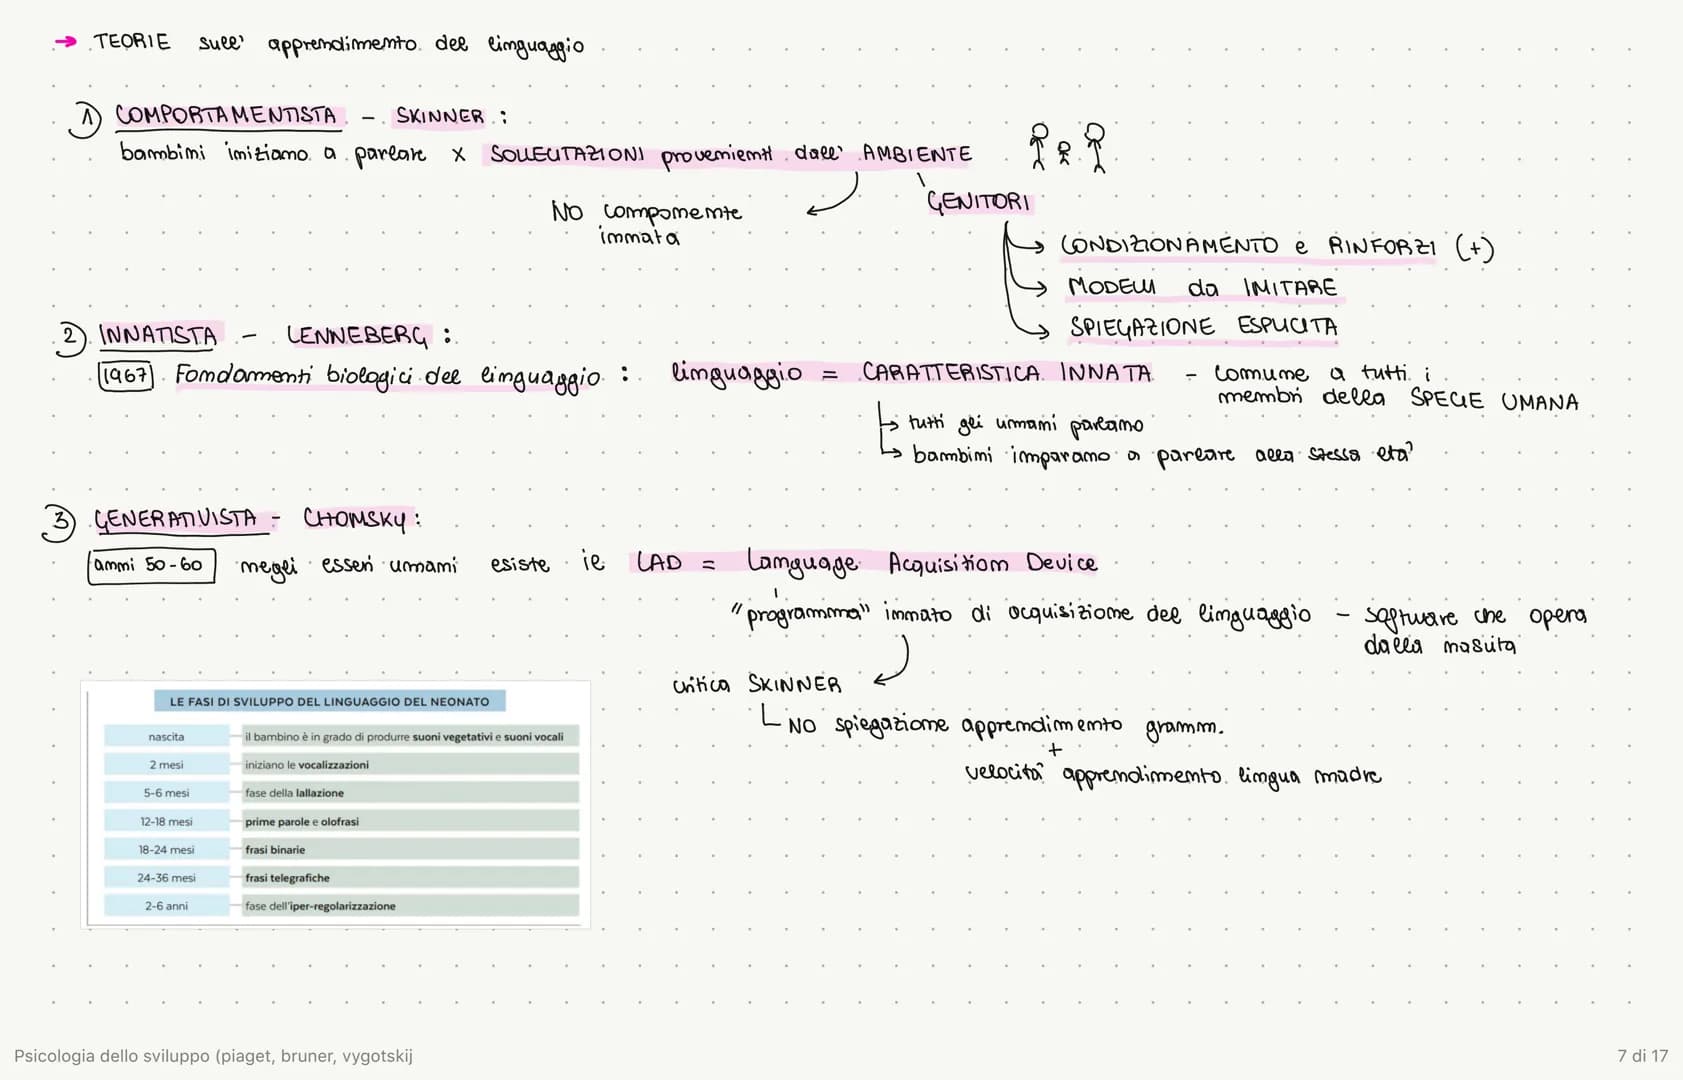 → TEORIE sull' apprendimento del linguaggio
1) COMPORTAMENTISTA - SKINNER :
bambini iniziano a parlare x SOLLECITAZIONI provenienti dall' AMBIENTE
GENITORI
NO componente
innata
→ CONDIZIONAMENTO e RINFORZI (+)
→ MODELLI da IMITARE
→ SPIEGAZIONE ESPLICITA
2) INNATISTA - LENNEBERG :
1967 Fondamenti biologici del linguaggio : linguaggio = CARATTERISTICA INNATA - comune a tutti i
membri della SPECIE UMANA
→ tutti gli umani parlano
→ bambini imparano a parlare alla stessa età
3) GENERATIVISTA - CHOMSKY :
anni 50-60 negli esseri umani esiste il LAD = Language Acquisition Device
"programma" innato di acquisizione del linguaggio - software che opera
dalla nascita
critica SKINNER
NO spiegazione apprendimento gramm.
+
velocità apprendimento lingua madre
LE FASI DI SVILUPPO DEL LINGUAGGIO DEL NEONATO
nascita il bambino è in grado di produrre suoni vegetativi e suoni vocali
2 mesi iniziano le vocalizzazioni
5-6 mesi fase della lallazione
12-18 mesi prime parole e olofrasi
18-24 mesi frasi binarie
24-36 mesi frasi telegrafiche
2-6 anni fase dell'iper-regolarizzazione
Psicologia dello sviluppo (piaget, bruner, vygotskij
7 di 17